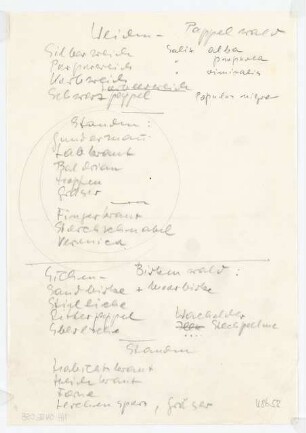 Weiden - Pappelwald
Silberweide Salix alba
Purpurweide " purpurea
Korbweide " viminalis
Schwarzpappel Populus nigra
Stauden:
Gundermann
Labkraut
Baldrian
Hopfen
Gräser
Fingerkraut
Storchschnabel
Veronica
Eichen - Birkenwald:
Sandbirke + Moorbirke
Stieleiche
Zitterpappel Wacholder
Eberesche Stechpalme
Stauden
Habichtskraut
Heidekraut
Farne
Lerchensporn, Gräser